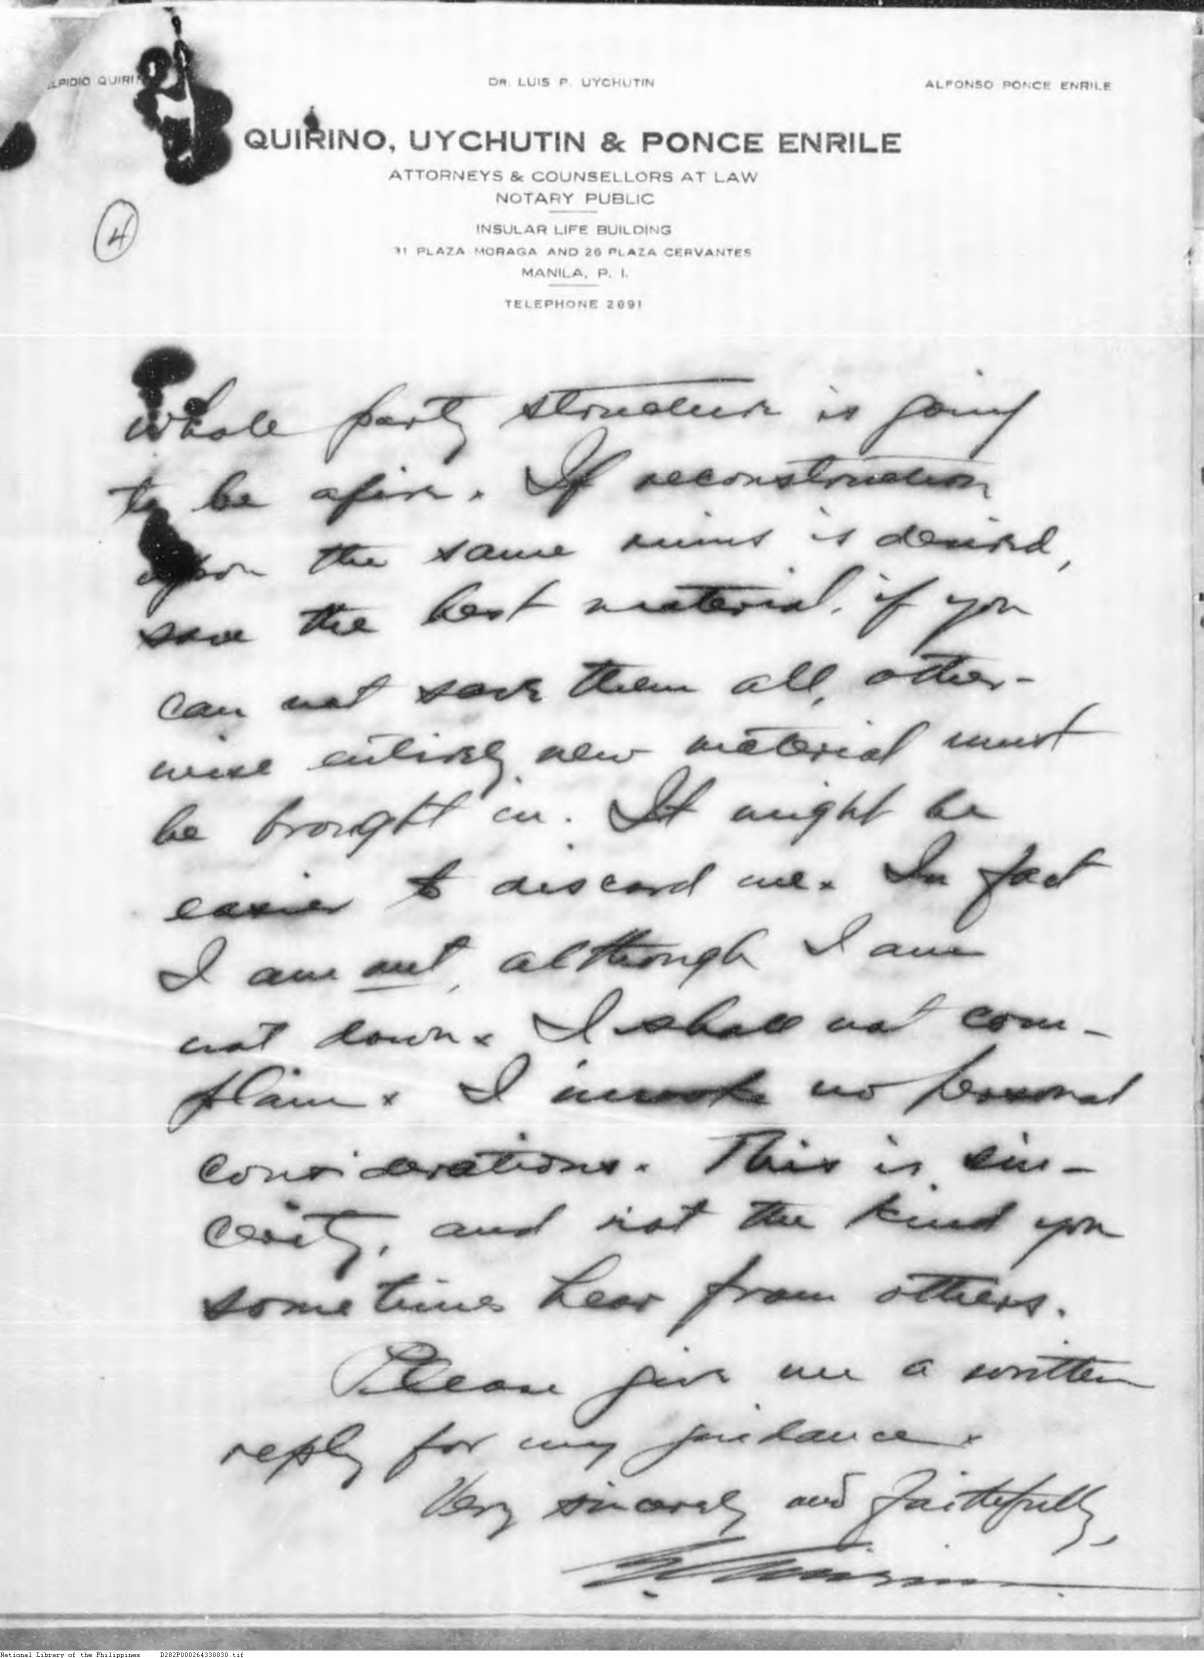 LPIDIO QUIRI
DR. LUIS P. UYCHUTIN
ALFONSO PONCE ENRILE
QUIRINO, UYCHUTIN & PONCE ENRILE
ATTORNEYS & COUNSELLORS AT LAW
NOTARY PUBLIC
INSULAR LIFE BUILDING
31 PLAZA MORAGA AND 26 PLAZA CERVANTES
MANILA, P. I.
TELEPHONE 2691
4
whole party structure is going
to be afire. If reconstruction
upon the same ruins is desired,
save the best material, if you
can not save them all, other-
wise entirely new material must
be brought in. It might be
easier to discard me. In fact
I am out, although I am
not down. I shall not com-
plain. I invoke no personal
considerations. This is sin-
cerity, and not the kind you
sometimes hear from others.
Please give me a written
reply for my guidance.
Very sincerely and faithfully,
E. Quirino
National Library of the Philippines D282P000264338830.tif